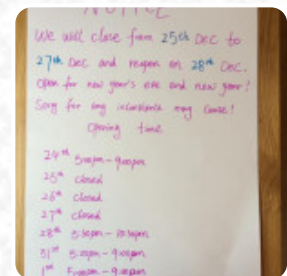 NOTICE
We will close from 25th Dec to
27th Dec and reopen on 28th Dec.
Open for new year's eve and new year!
Sorry for any inconvenience may cause!
Opening time
24th 5:00pm - 9:00pm
25th closed
26th closed
27th closed
28th 5:30pm - 10:30pm
31st 5:00pm - 9:00pm
1st 5:00pm - 9:00pm